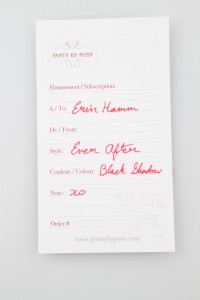 PARTY BY POST
Abonnement / Subscription
À / To: Erin Hamm
De / From:
Style: Ever After
Couleur / Colour: Black Shadow
Note: XO
Order #
www.partybypost.com